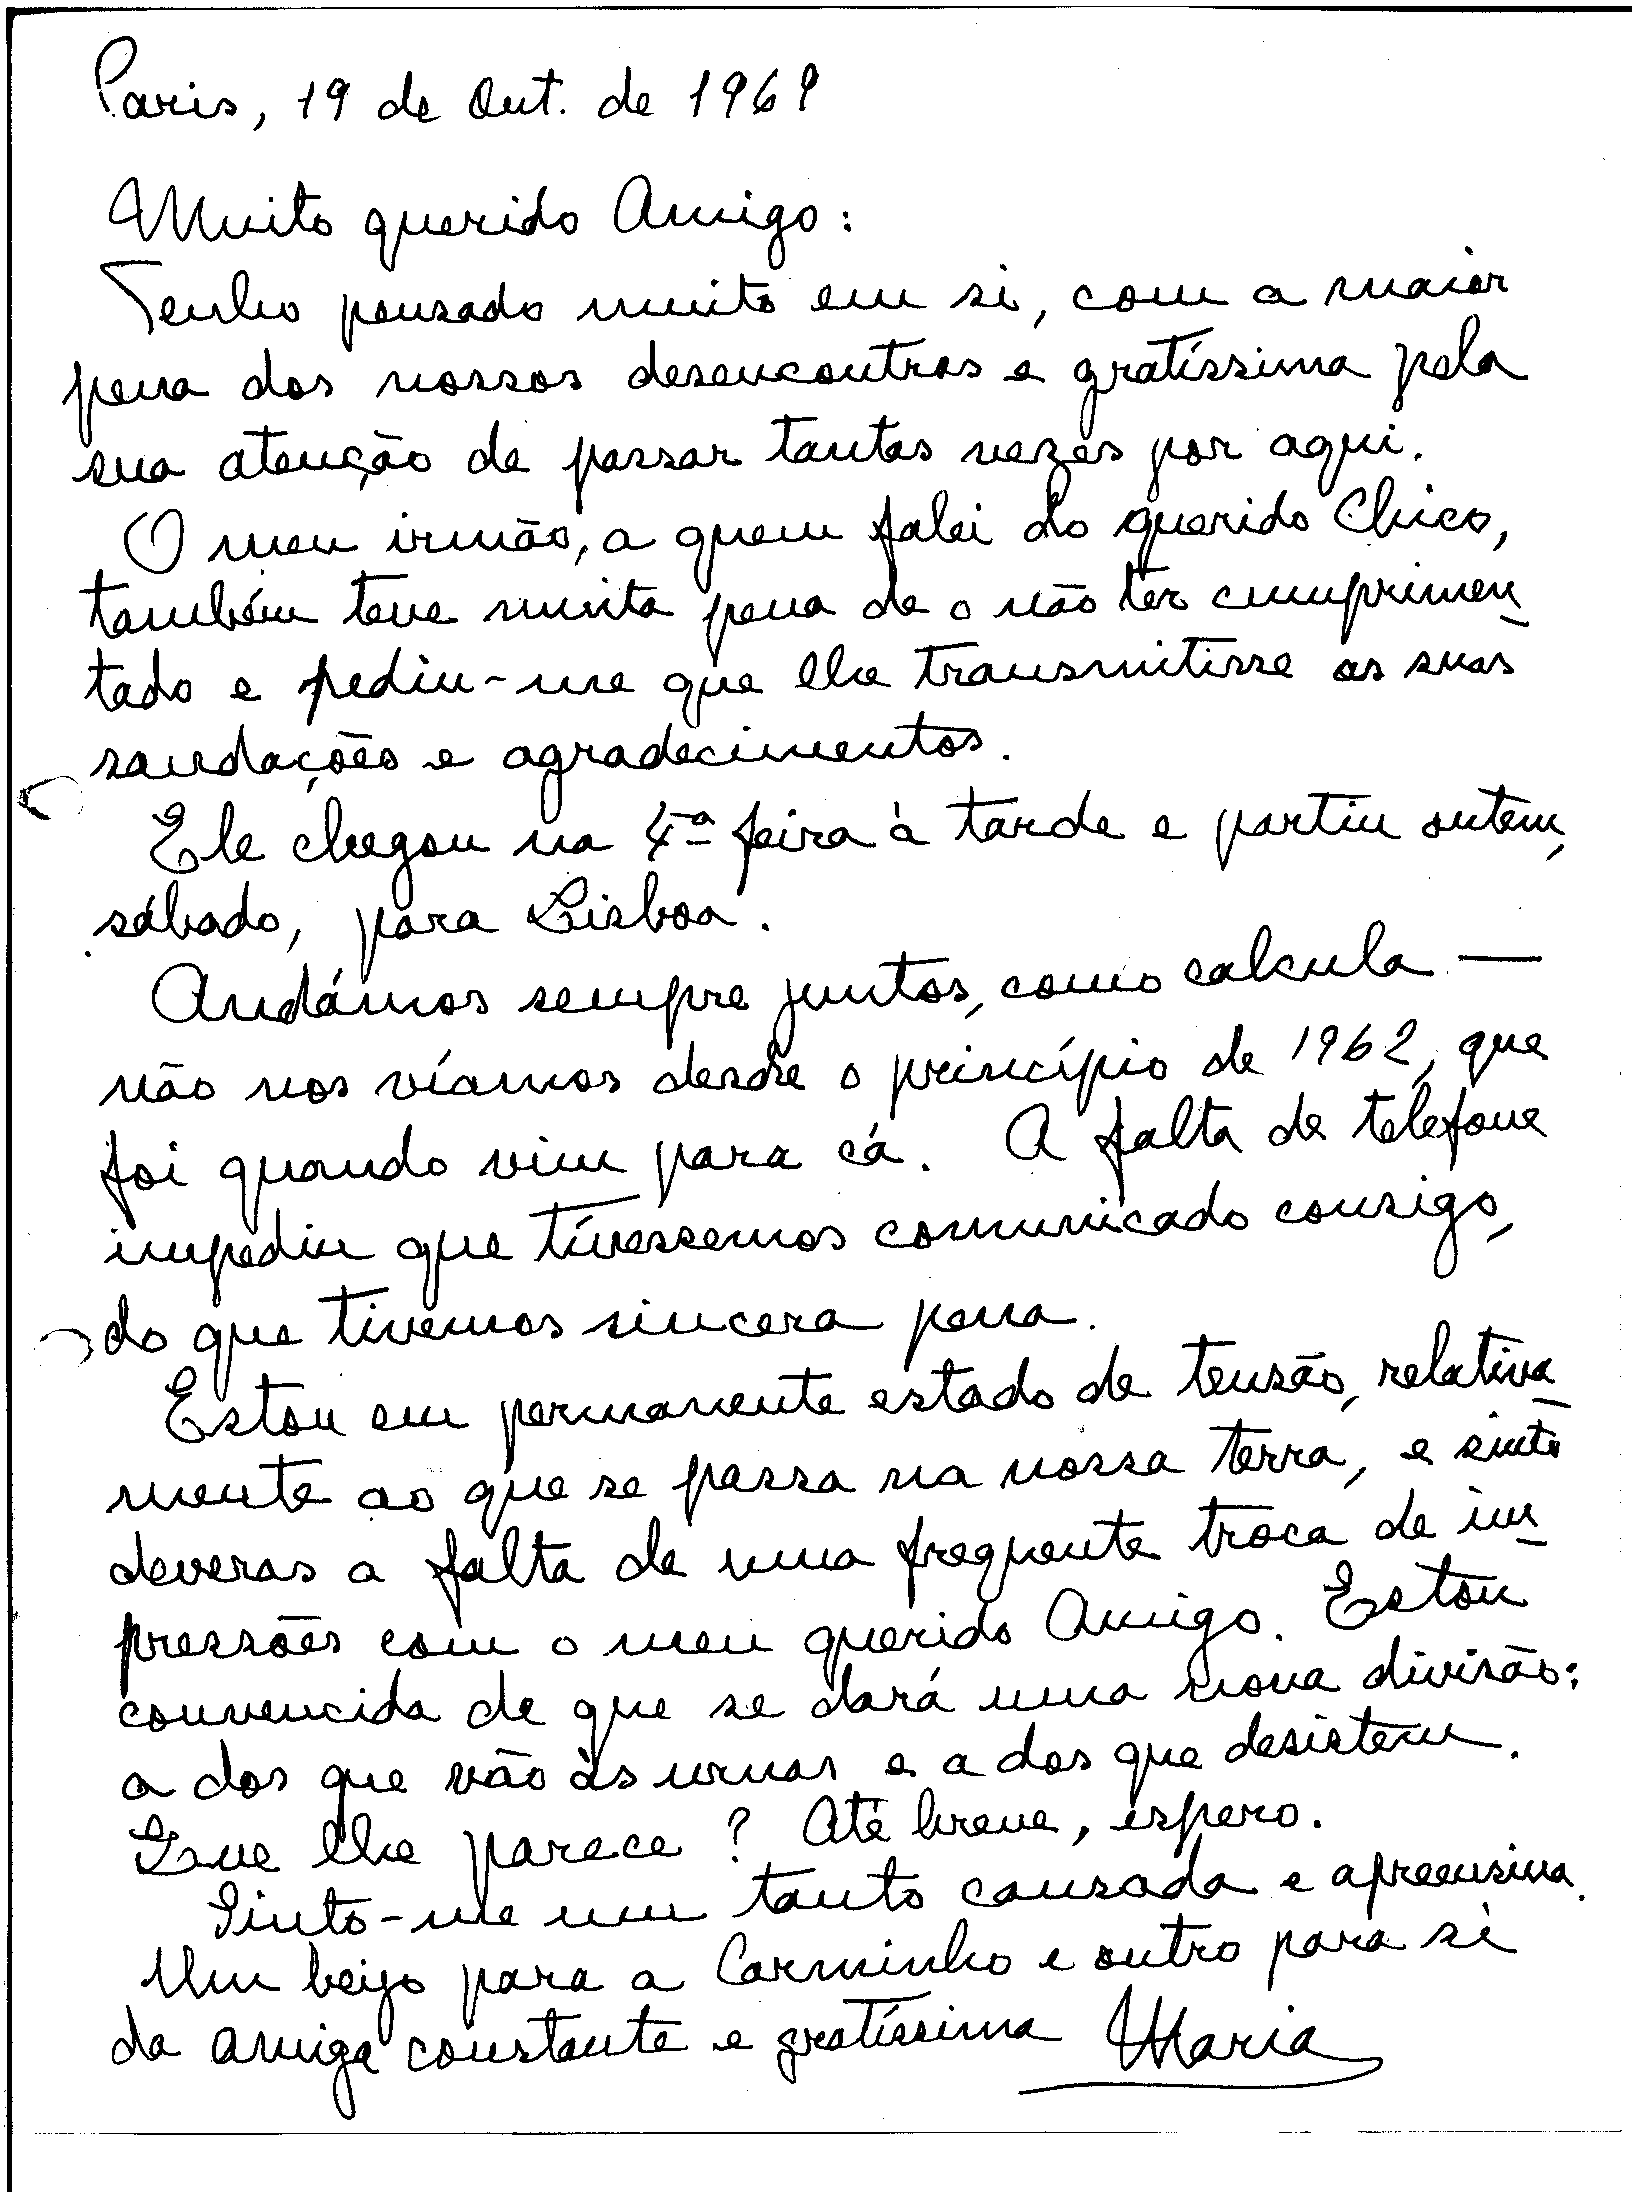 Paris, 19 de Out. de 1969
Muito querido Amigo:
Tenho pensado muito em si, com a maior
pena dos nossos desencontros e gratíssima pela
sua atenção de passar tantas vezes por aqui.
O meu irmão, a quem falei do querido Chico,
também teve muita pena de o não ter cumprimen-
tado e pediu-me que lhe transmitisse as suas
saudações e agradecimentos.
Ele chegou na 4ª feira à tarde e partiu ontem,
sábado, para Lisboa.
Andámos sempre juntos, como calcula —
não nos víamos desde o princípio de 1962, que
foi quando vim para cá. A falta de telefone
impediu que tívessemos comunicado consigo,
do que tivemos sincera pena.
Estou em permanente estado de tensão, relativa-
mente ao que se passa na nossa terra, e sinto
deveras a falta de uma frequente troca de im-
pressões com o meu querido Amigo. Estou
convencida de que se dará uma nova divisão:
a dos que vão às urnas e a dos que desistem.
Que lhe parece? Até breve, espero.
Sinto-me um tanto cansada e apreensiva.
Um beijo para a Carminho e outro para si
da amiga constante e gratíssima Maria